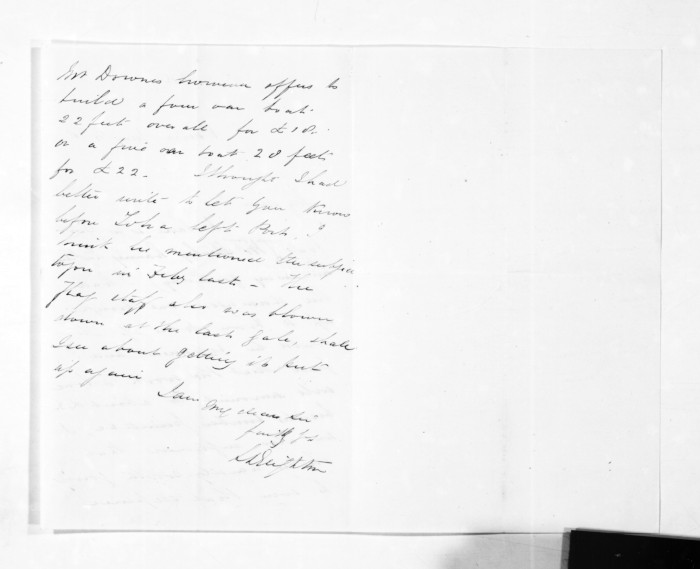 Mr Downes however offers to
build a four oar boat
22 feet over all for £18.
or a five oar boat 28 feet
for £22 - I thought I had
better write to let you know
before left Port. I
think he mentioned the subject
to you in Feby last - The
Flag staff also was blown
down at the last gale, shall
I see about getting it put
up again
I am
my dear Sir